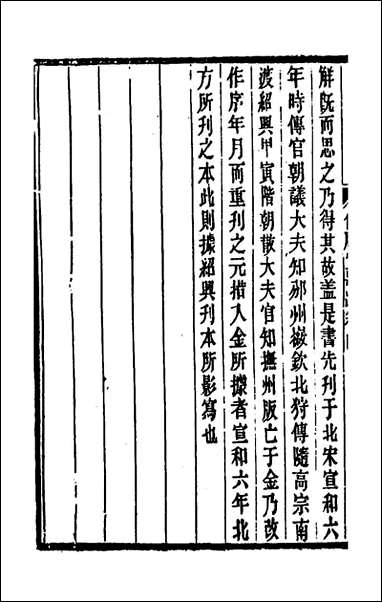 解既而思之乃得其故蓋是書先刊于北宋宣和六
年時傅官朝議大夫知邠州㠜欽北狩傅隨高宗南
渡紹興甲寅階朝散大夫官知撫州版亡于金乃改
作序年月而重刊之元措入金所據者宣和六年北
方所刊之本此則據紹興刊本所影寫也